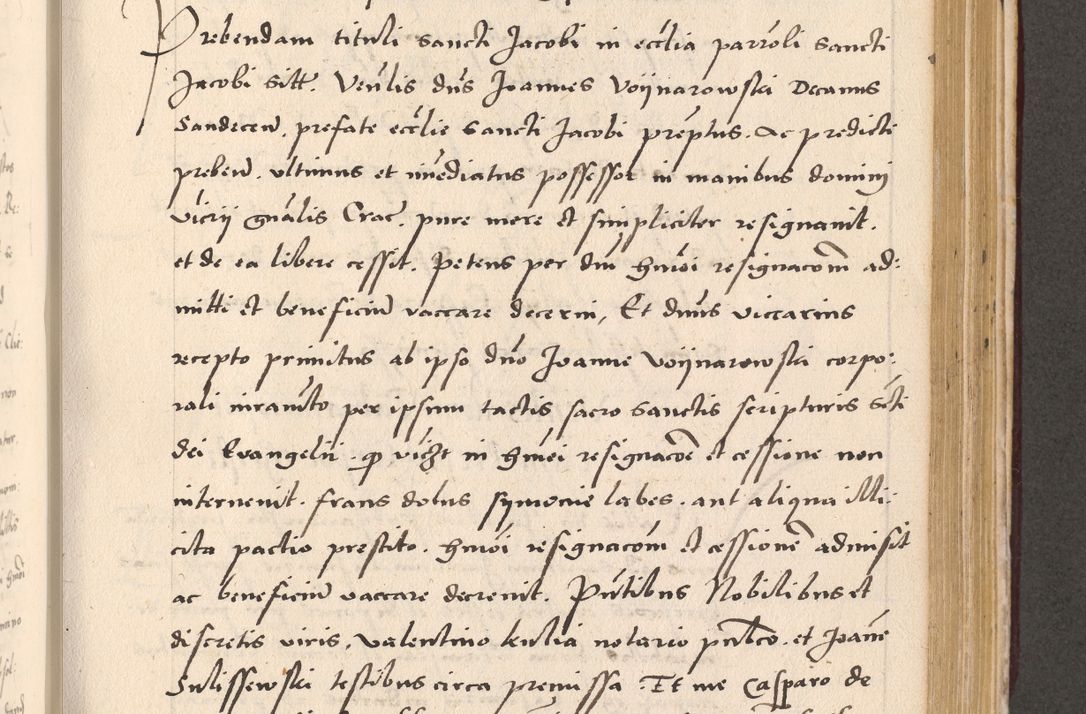 Prebendam tituli sancti Jacobi in ecclia parroli sancti
Jacobi sitt. Venlis dns Joannes Voijnarowski Decanus
Sandecen. prefate ecclie sancti Jacobi preptus. Ac predicti
preben. ultimus et imediatus possessor in manibus domini
vicrii gnalis Crac. pure mere et simpliciter resignavit.
et de ea libere cessit. Petens per dni hmoi resignacom ad:
mitti et beneficiu vaccare decerni, Et dnus viccarius
recepto primitus ab ipso dno Joanne Voijnarowski corpo:
rali iuramto per ipsum tactis sacro sanctis scripturis scti
dei Evangelii. in hmoi resignacoe et cessione non
intervenit. fraus dolus symonie labes. aut aliqua illi:
cita pactio prestito. hmoi resignacom et cessione admisit
ac beneficiu vaccare decrevit. Pntibus Nobilibus et
discretis viris, Valentino notario publco. et Joane
Sulissewski testibus circa premissa. Et me Casparo de